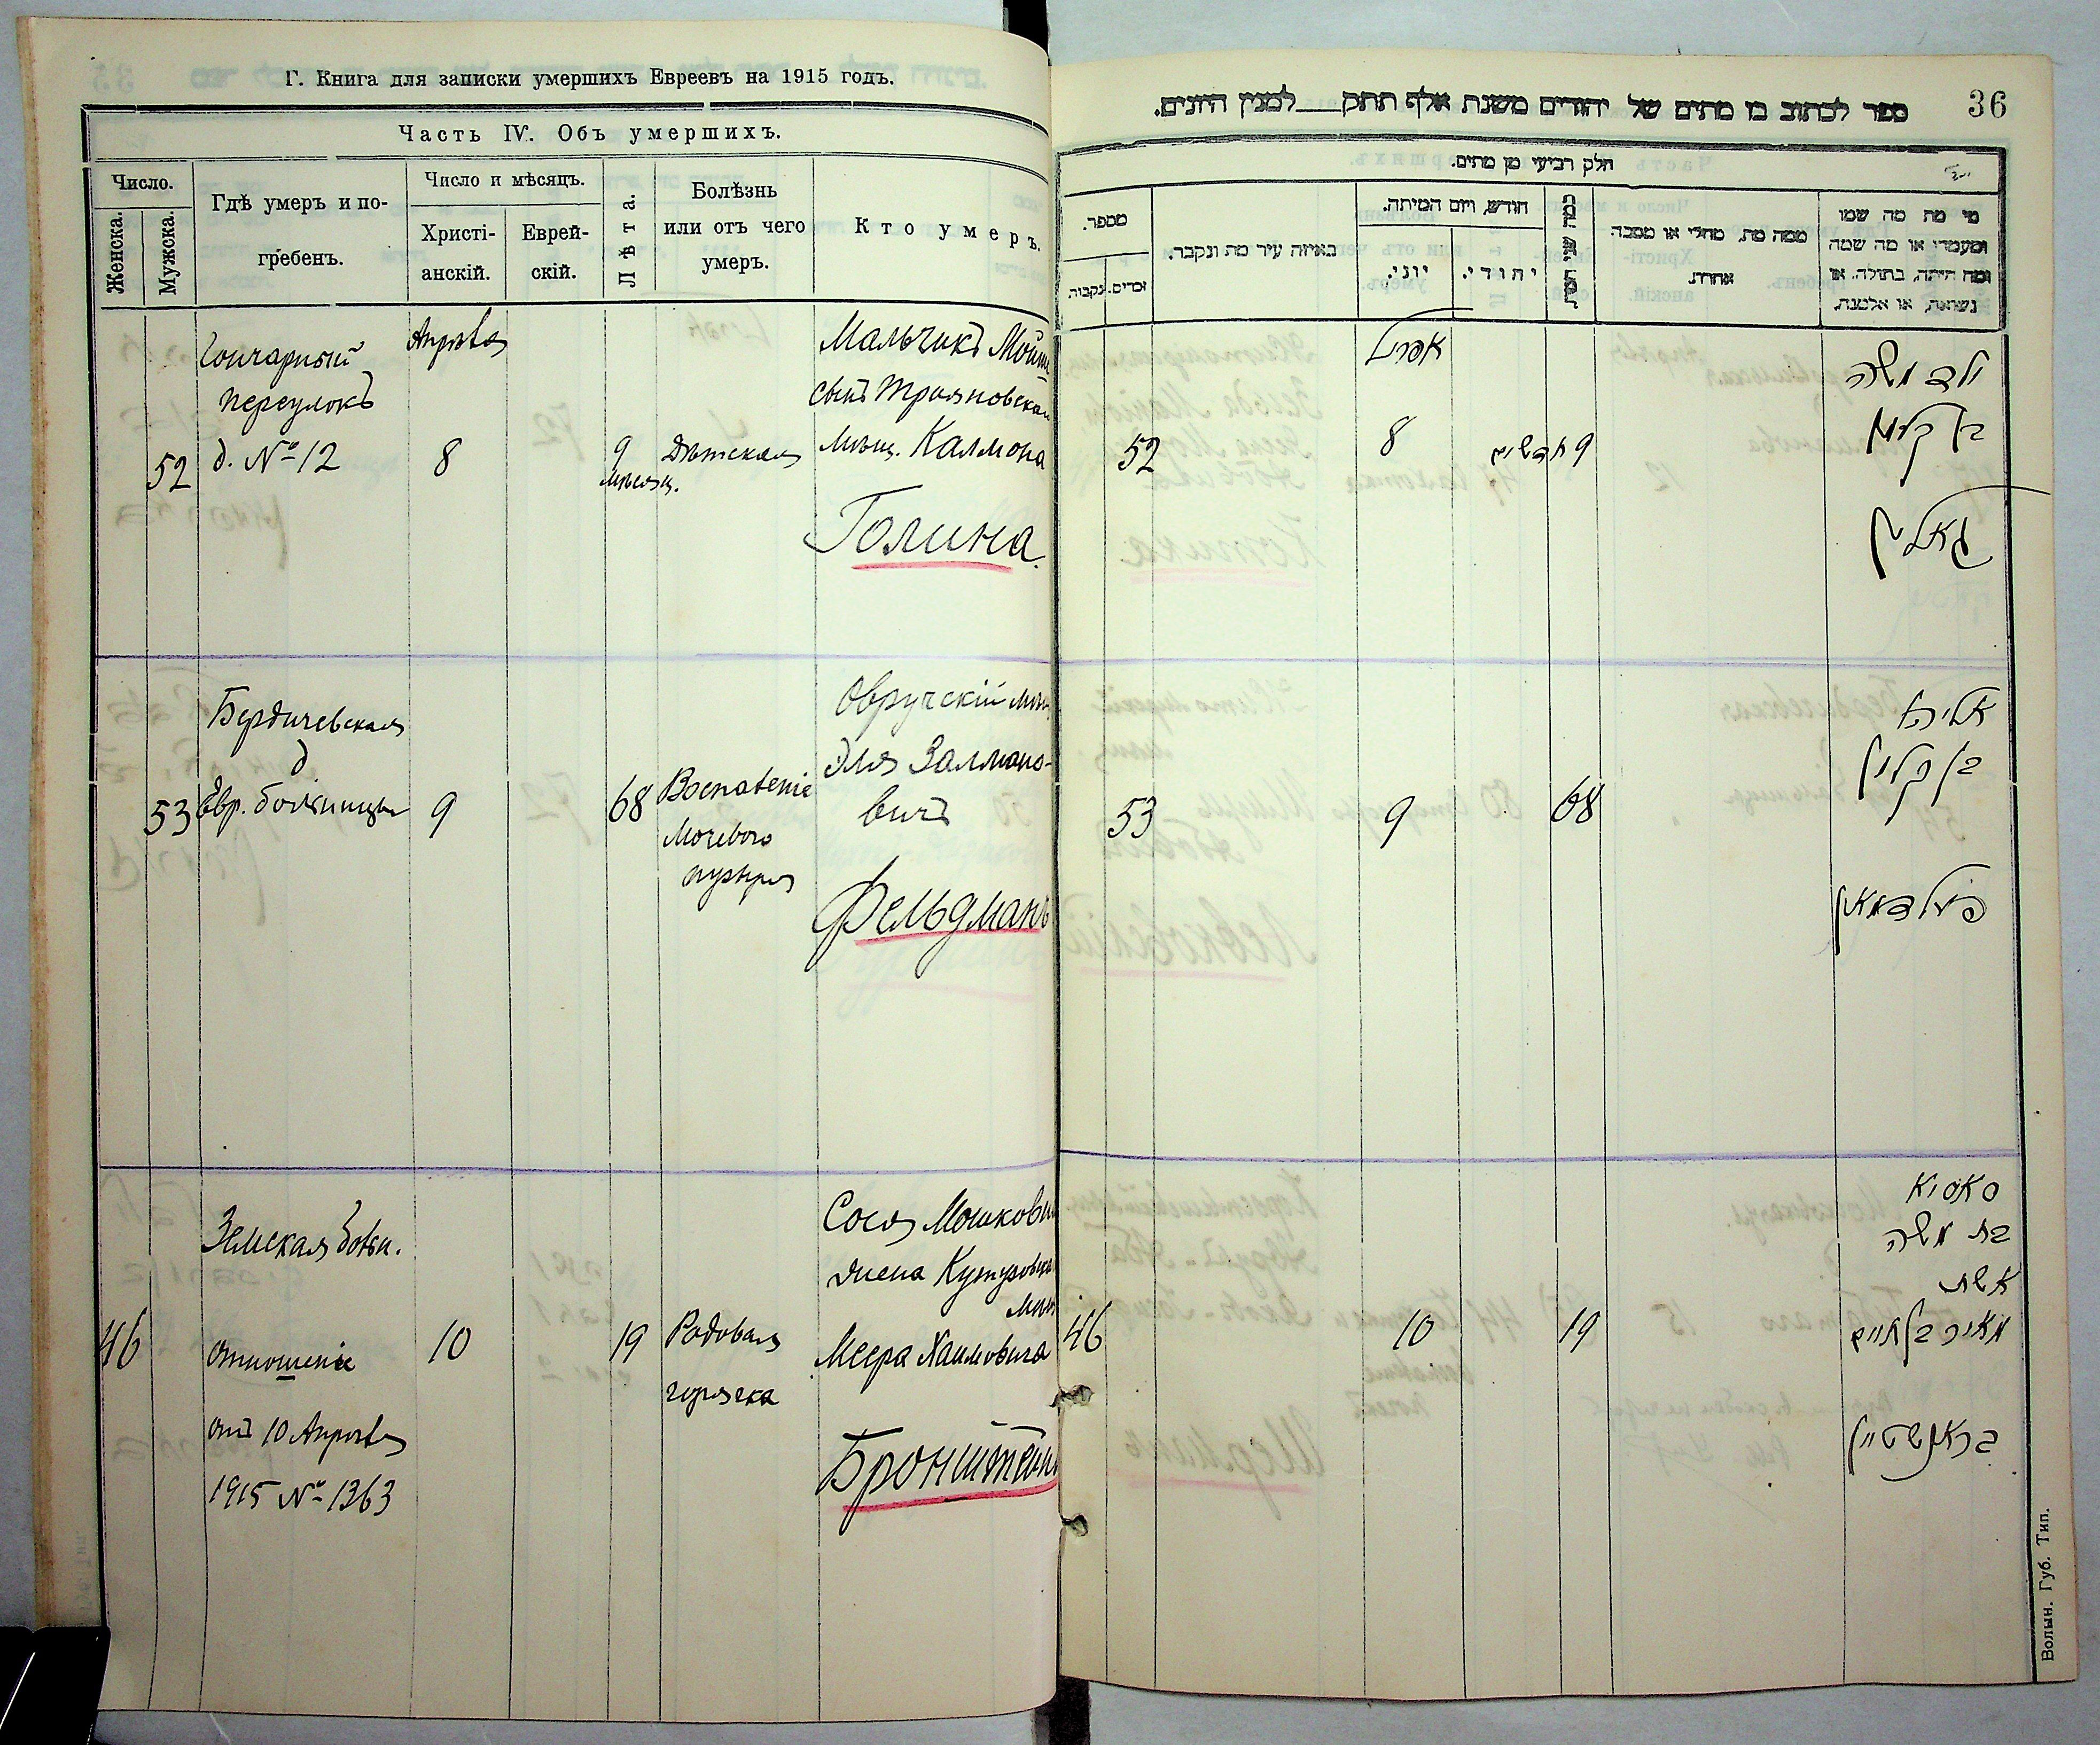 Г. Книга для записки умершихъ Евреевъ на 1915 годъ.
Часть IV. Объ умершихъ.
Число.
Женска.
Мужска.
Гдѣ умеръ и по-
гребенъ.
Число и мѣсяцъ.
Христі-
анскій.
Еврей-
скій.
Лѣта.
Болѣзнь
или отъ чего
умеръ.
Кто умеръ.
52
Гончарный
переулокъ
д. № 12
Апрѣля
8
9
мѣсяц.
Дѣтская
Мальчикъ Мойше
сынъ Трояновскаго
мѣщ. Калмона
Голина.
53
Бердичевская
д
Евр. больницы
9
68
Воспаленіе
мочевого
пузыря
Овручскій мѣщ.
Эля Залмано-
вичъ
Фельдманъ
46
Земская больн.
отношеніе
отъ 10 Апрѣля
1915 № 1363
10
19
Родовая
горячка
Сося Мошковна
жена
Меера Хаимовича
Бронштейнъ
36
ספר לכתוב בו מתים של יהודים משנת אלף תתק___למנין היונים.
חלק רביעי מן מתים.
מספר.
זכרים.
נקבות.
באיזה עיר מת ונקבר.
חודש, ויום המיתה.
יוני.
יהודי.
ממה מת, מחלי או מסבה
אחרת.
מי מת מה שמו
ומעמדו או מה שמה
ומה היתה, בתולה, או
נשואה, או אלמנה.
52
אפריל
8
9 חדשים
ילד משה
בן קלמן
גאלין
53
9
68
אליהו
בן זלמן
פעלדמאן
46
10
19
סאסיא
בת משה
אשת
מאיר בן חיים
בראנשטיין
Волын. Губ. Тип.